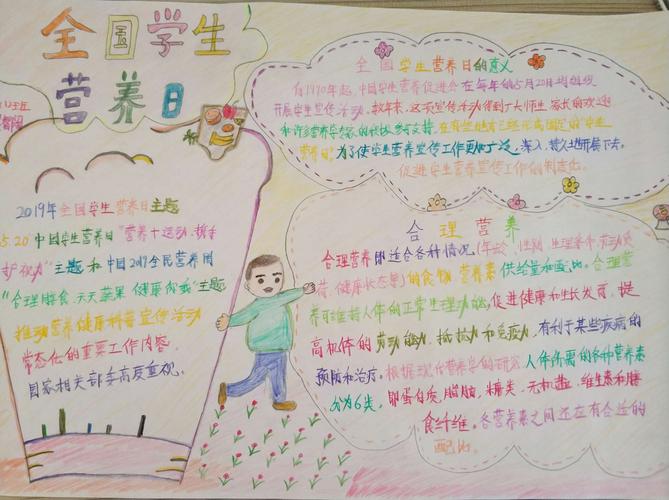 全国学生
营养日
2019年全国学生营养日主题
5.20中国学生营养日"营养+运动、携手
护视力"主题和中国2019全民营养周
"合理膳食、天天蔬果、健康你我"主题
推动营养健康科普宣传活动
常态化的重要工作内容。
国家相关部委高度重视。
全国学生营养日的意义
自1990年起,中国学生营养促进会在每年的5月20日均组织
开展学生宣传活动,数年来,这项宣传活动得到广大师生、家长的欢迎
和许多营养专家的积极参与支持,在有些地方已经形成固定的"学生
营养日"为了使学生营养宣传工作更加广泛、深入、持久地开展下去。
促进学生营养宣传工作的制度化。
合理营养
合理营养即适合各种情况(年龄、性别、生理条件、劳动负
荷、健康状态等)的食物、营养素供给量和配比。合理营
养可维持人体的正常生理功能,促进健康和生长发育,提
高机体的劳动能力、抵抗力和免疫力,有利于某些疾病的
预防和治疗。根据现代营养学的研究,人体所需的各种营养素
分为6类,即蛋白质、脂肪、糖类、无机盐、维生素和膳
食纤维。各营养素之间还存有合适的
配比。